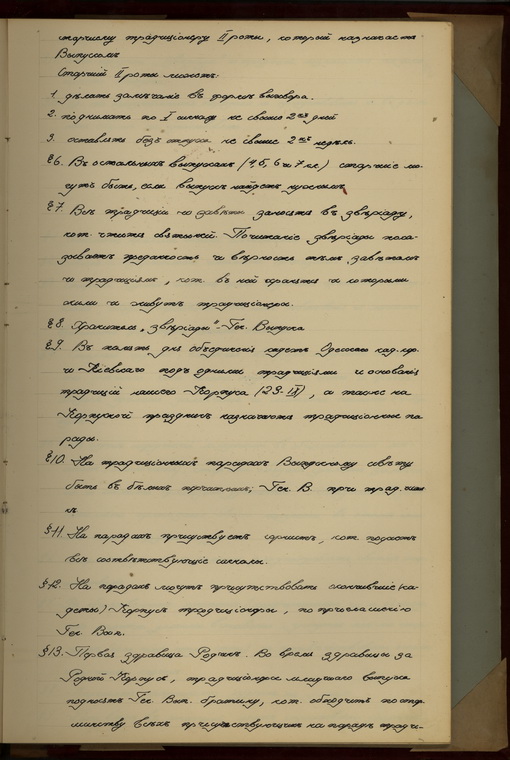 старшему традиціонеру II роты, который назначается
Выпускомъ
Старшій II роты можетъ:
1. дѣлать замѣчаніе въ формѣ выговора.
2. поднимать по I сигналу не свыше 2ух дней
3. оставлять безъ отпуска не свыше 2хъ недѣль.
§6. Въ остальныхъ выпускахъ (4, 5, 6 и 7 кл) старшіе мо-
гутъ быть, если выпускъ найдетъ нужнымъ.
§7. Всѣ традиціи и завѣты заносятся въ звѣріаду,
кот. чтится святыней. Почитаніе звѣріады пока-
зываетъ преданность и вѣрность тѣмъ завѣтамъ
и традиціямъ, кот. въ ней хранятся и которыми
жили и живутъ традиціонеры.
§8. Хранитель „звѣріады" - Ген. Выпуска
§9. Въ память дня объединенія кадетъ Одесского кад. кор.
и Кіевскаго подъ одними традиціями и основанія
традицій нашего Корпуса (23-IX), а также на
Корпусной праздникъ назначаются традиціонные па-
рады.
§10. На традиціонныхъ парадахъ Выпускному совѣту
быть въ бѣлыхъ перчаткахъ, Ген. В. при трад.
§11. На парадахъ присутствуетъ горнистъ, кот. подаетъ
всѣ соотвѣтствующіе сигналы.
§12. На парадахъ могутъ присутствовать окончившіе (ка-
детскій) Корпусъ традиціонеры, по приглашенію
Ген. Вып.
§13. Первая здравица Родинѣ. Во время здравицы за
Родной Корпусъ, традиціонеръ младшаго выпуска
подноситъ Ген. Вып. братину, кот. обходитъ по стар-
шинству всѣхъ присутствующихъ на парадѣ тради-